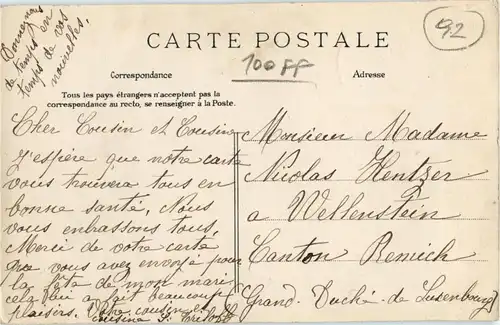 Donnez nous
de temps en
temps de vos
nouvelles.
92
CARTE POSTALE
100 FF
Correspondance
Adresse
Tous les pays étrangers n'acceptent pas la
correspondance au recto, se renseigner à la Poste.
Cher Cousin et Cousine
J'espère que notre carte
vous trouvera tous en
bonne santé. Nous
vous embrassons tous.
Merci de votre carte
que vous avez envoyé pour
la fête de mon mari
cela lui a fait beaucoup
plaisirs. Votre cousin et
cousine
Monsieur Madame
Nicolas Hentzer
a Wellenstein
Canton Remich
Grand-Duché-de Luxembourg